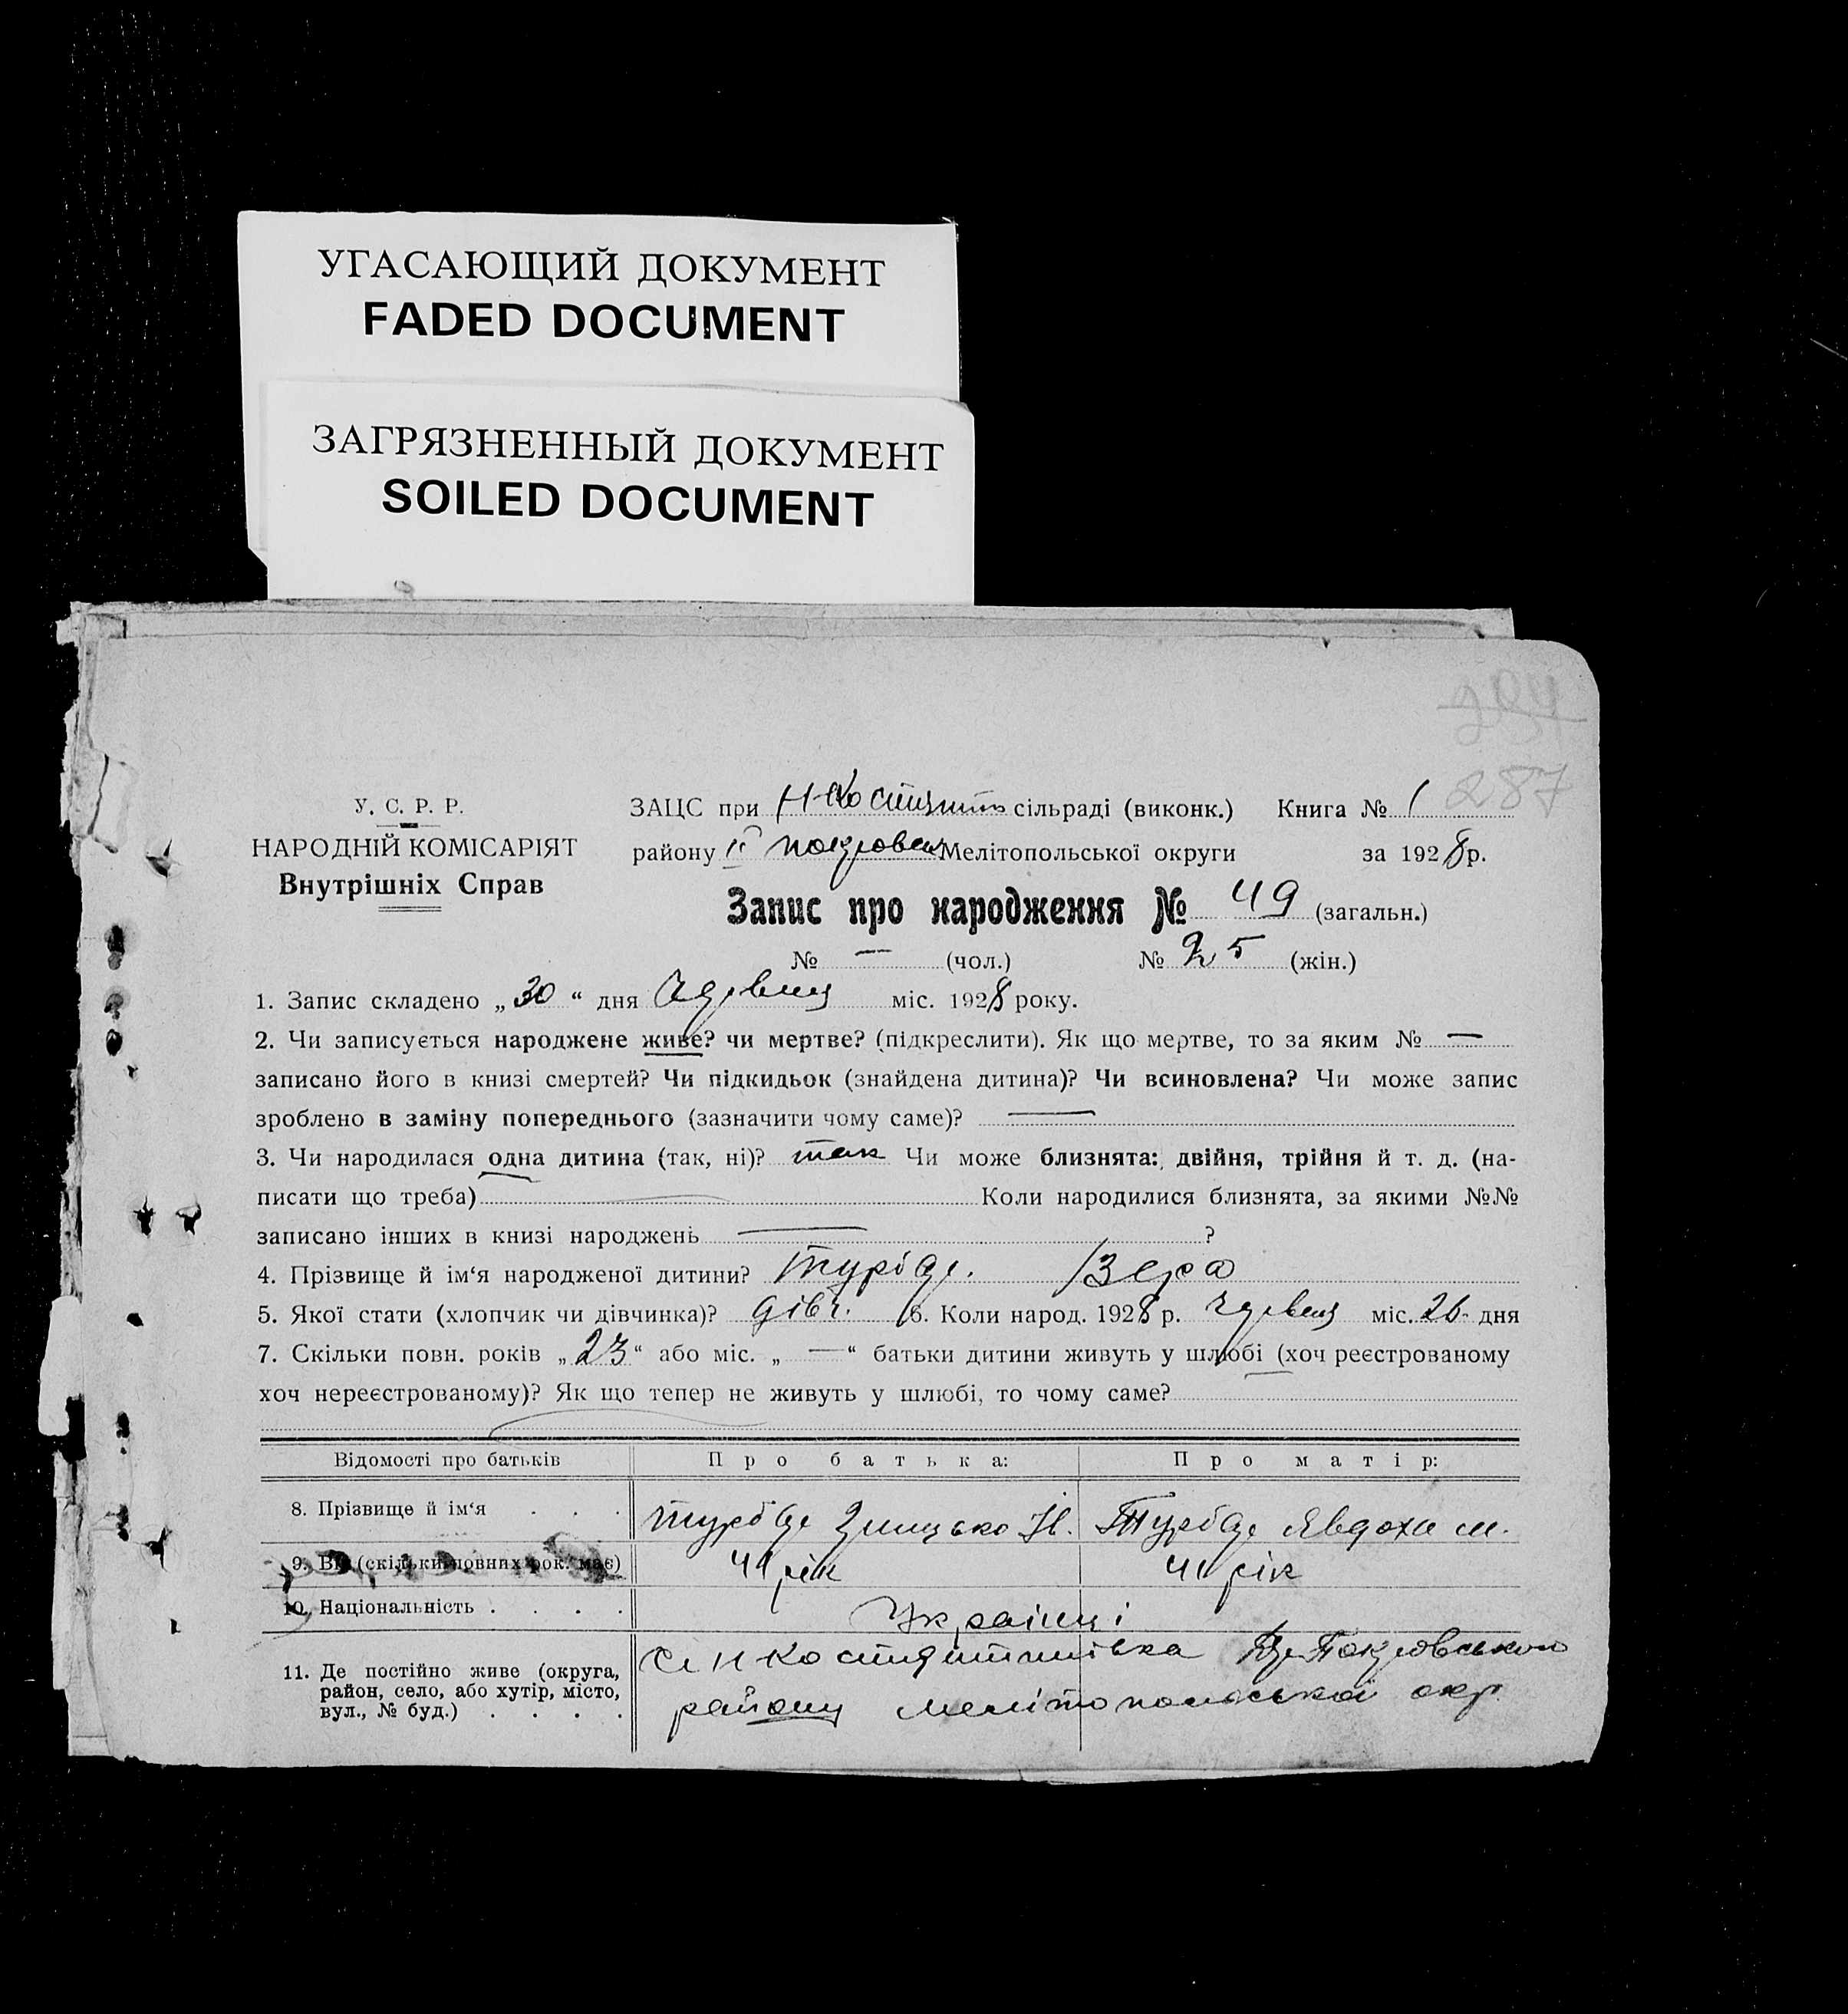 УГАСАЮЩИЙ ДОКУМЕНТ
FADED DOCUMENT
ЗАГРЯЗНЕННЫЙ ДОКУМЕНТ
SOILED DOCUMENT
287
У. С. Р. Р.
НАРОДНІЙ КОМІСАРІЯТ
Внутрішніх Справ
ЗАЦС при сільраді (виконк.) Книга № 1
району Мелітопольської округи за 1928 р.
Запис про народження № 49 (загальн.)
№ — (чол.) № 25 (жін.)
1. Запис складено „30“ дня міс. 1928 року.
2. Чи записується народжене живе? чи мертве? (підкреслити). Як що мертве, то за яким № —
записано його в книзі смертей? Чи підкидьок (знайдена дитина)? Чи всиновлена? Чи може запис
зроблено в заміну попереднього (зазначити чому саме)? —
3. Чи народилася одна дитина (так, ні)? так Чи може близнята: двійня, трійня й т. д. (на-
писати що треба) — Коли народилися близнята, за якими №№
записано інших в книзі народжень — ?
4. Прізвище й ім‘я народженої дитини? Вера
5. Якої стати (хлопчик чи дівчинка)? дівч. 6. Коли народ. 1928 р. міс. 26 дня
7. Скільки повн. років „23“ або міс. „—“ батьки дитини живуть у шлюбі (хоч реєстрованому
хоч нереєстрованому)? Як що тепер не живуть у шлюбі, то чому саме?
Відомості про батьків Про батька: Про матір:
8. Прізвище й ім‘я . . . Явдоха М.
9. Вік (скільки повних рок. має) 41 рік 41 рік
10. Національність . . . . Українці
11. Де постійно живе (округа,
район, село, або хутір, місто,
вул., № буд.) . . . .
Покровського
району Мелітопольської окр.